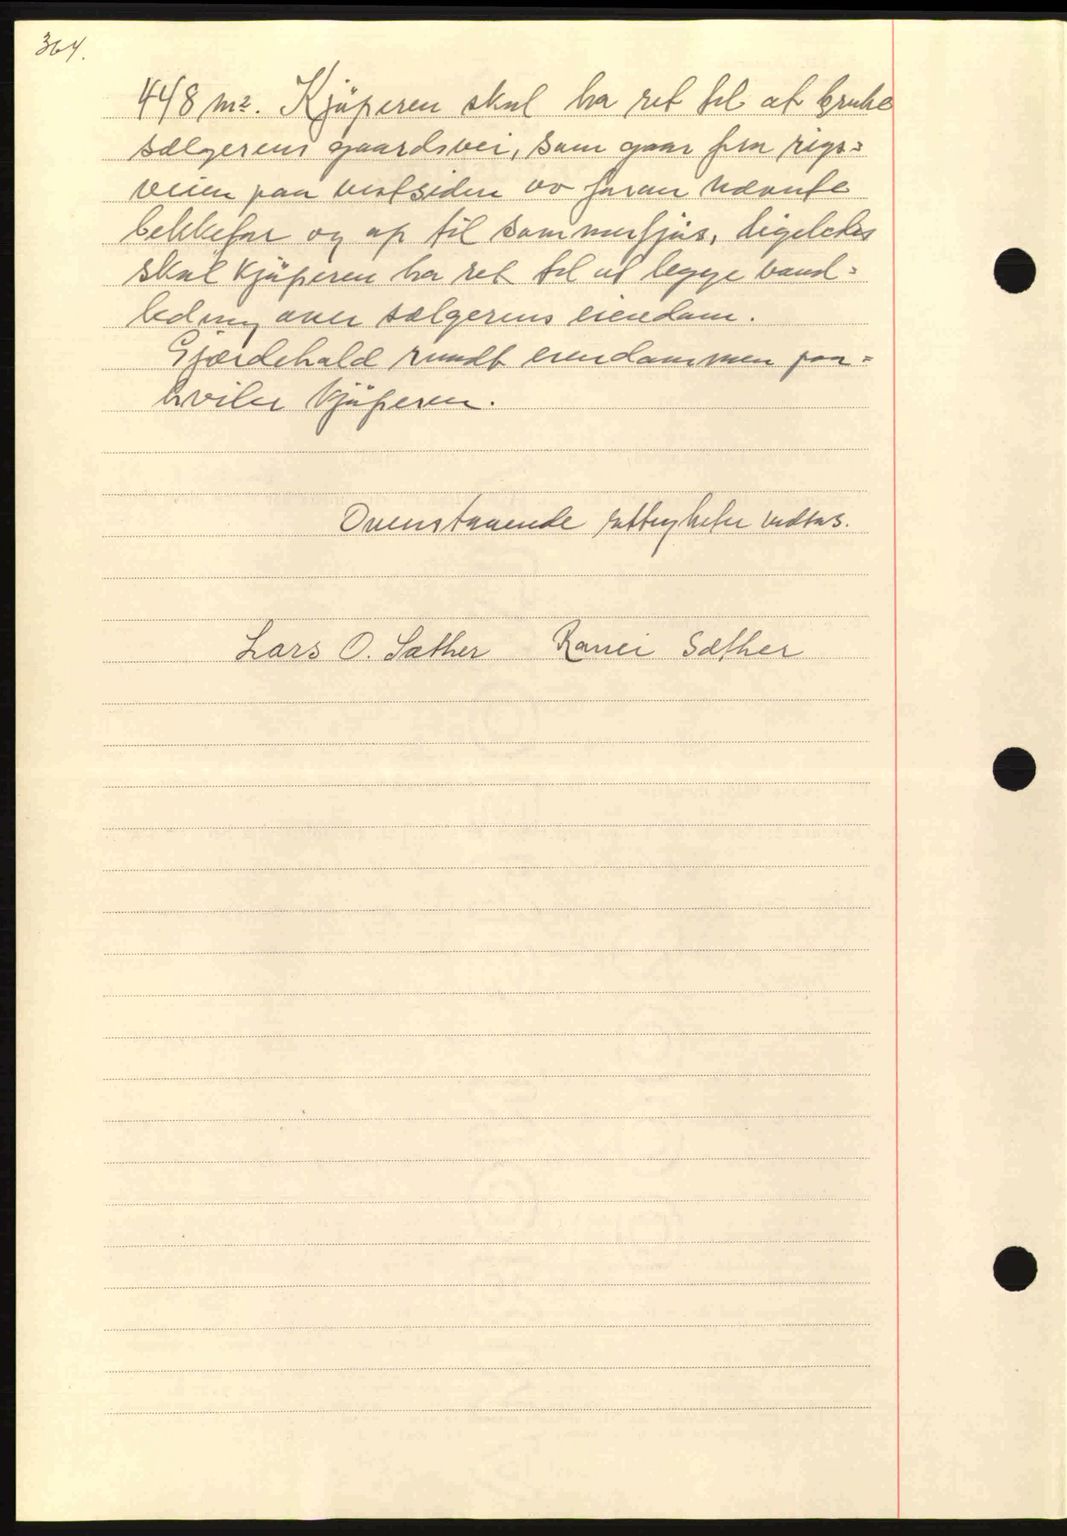 364.
448 m². Kjøperen skal ha ret til at bruke
sælgerens gaardsvei, som gaar fra rigs=
veien paa vestsiden av foran nævnte
bekkefar og op til sommerfjøs, ligeledes
skal kjøperen ha ret til at legge vand=
ledning over sælgerens eiendom.
Gjærdehold rundt eiendommen paa=
hviler kjøperen.
Ovenstaaende rettigheter vedtas.
Lars O. Sæther Sæther